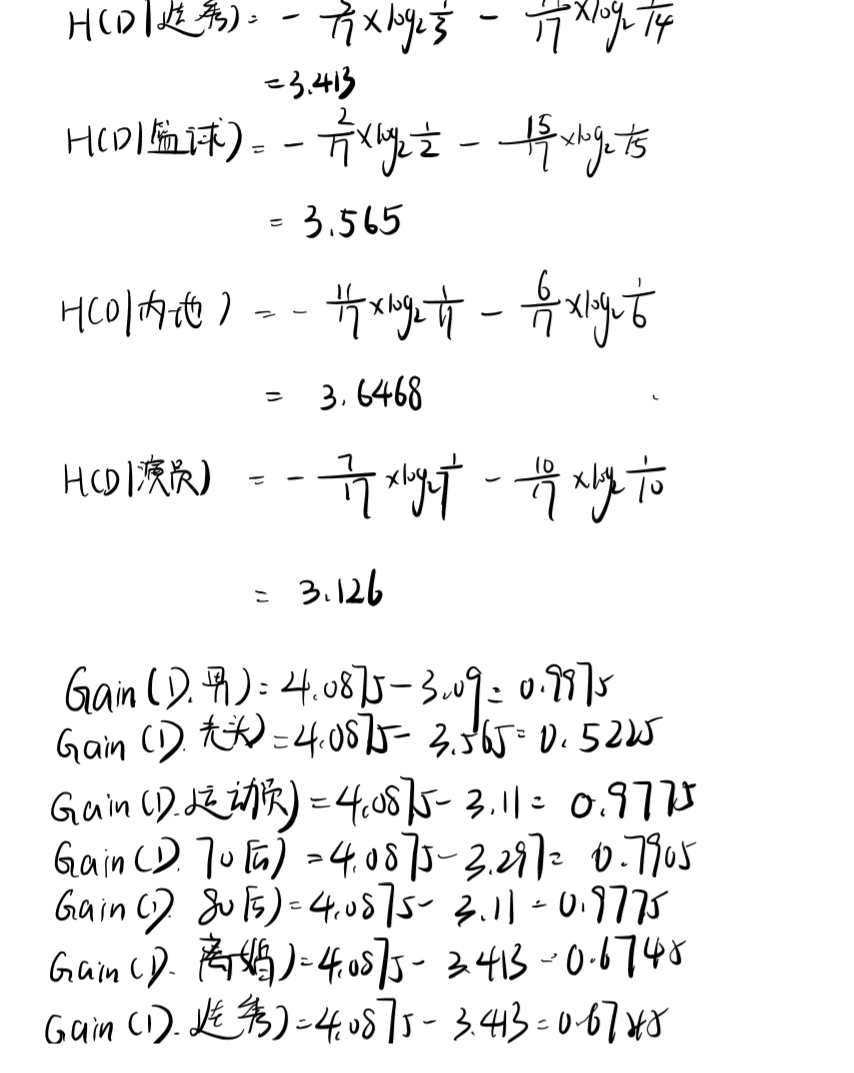 H(D|选秀) = - 3/17 × log₂ 1/3 - 14/17 × log₂ 1/14
= 3.413
H(D|篮球) = - 2/17 × log₂ 1/2 - 15/17 × log₂ 1/15
= 3.565
H(D|内地) = - 11/17 × log₂ 1/11 - 6/17 × log₂ 1/6
= 3.6468
H(D|演员) = - 7/17 × log₂ 1/7 - 10/17 × log₂ 1/10
= 3.126
Gain(D.男) = 4.0875 - 3.09 = 0.9975
Gain(D.光头) = 4.0875 - 3.565 = 0.5225
Gain(D.运动员) = 4.0875 - 3.11 = 0.9775
Gain(D.70后) = 4.0875 - 3.297 = 0.7905
Gain(D.80后) = 4.0875 - 3.11 = 0.9775
Gain(D.离婚) = 4.0875 - 3.413 = 0.6745
Gain(D.选秀) = 4.0875 - 3.413 = 0.6745